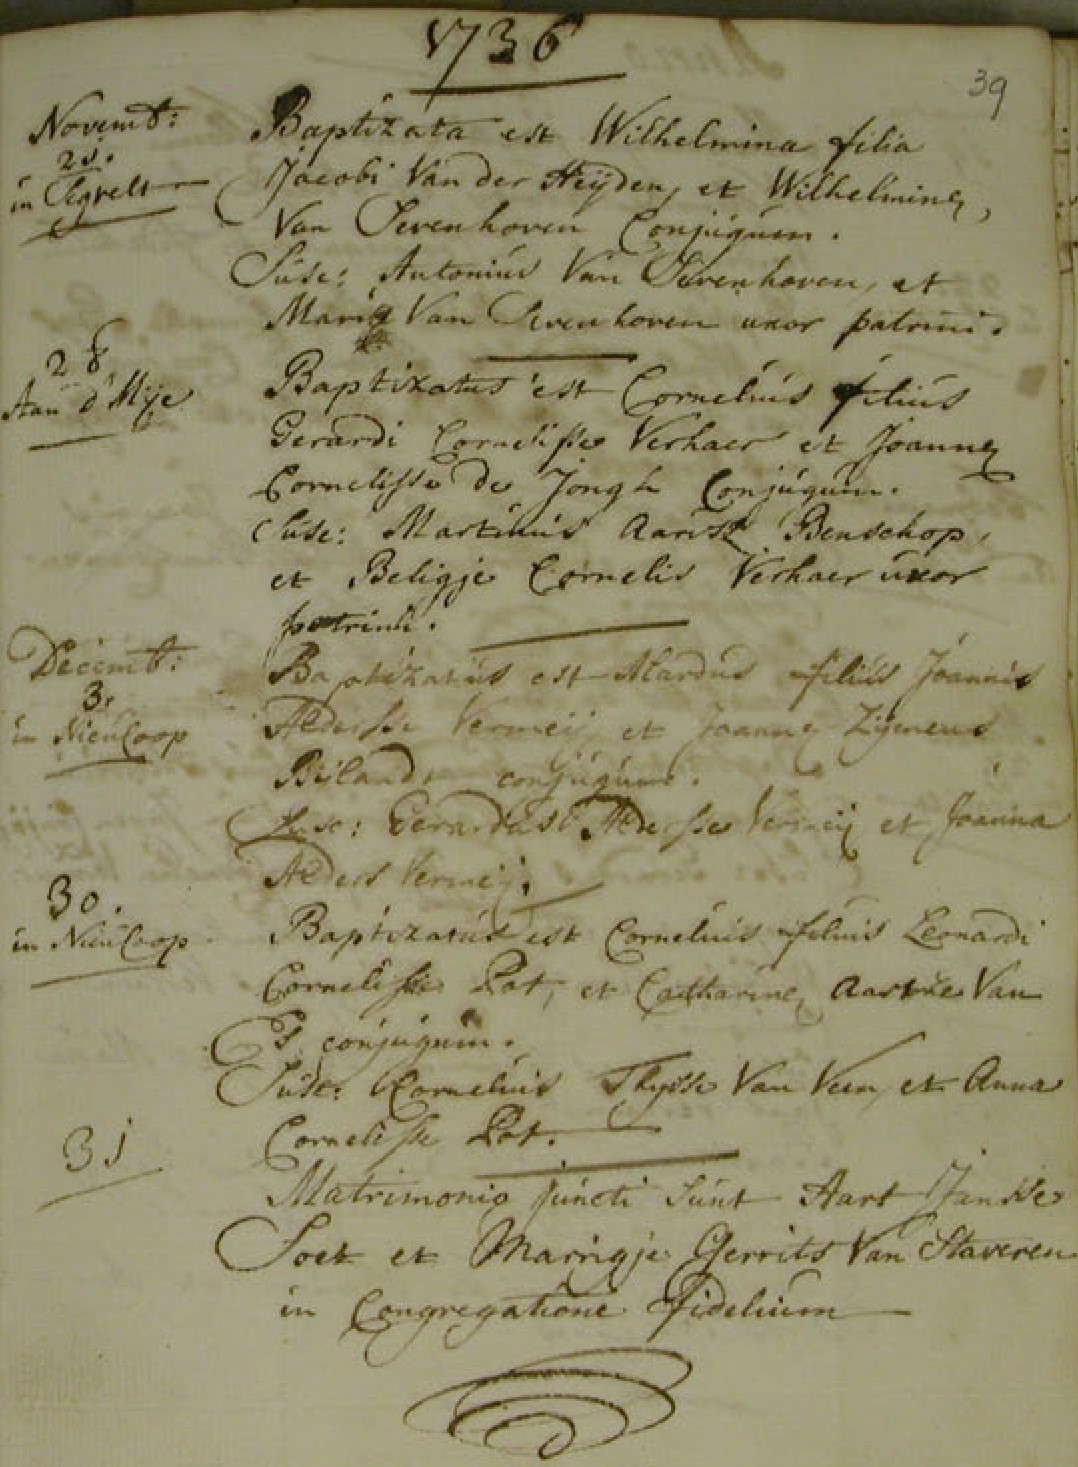 1736
39
Novemb:
21.
in Segvelt
Baptizata est Wilhelmina filia
Jacobi Van der Heÿden, et Wilhelminę,
Van Sevenhoven Conjúgúm.
Súsc: Antoniús Van Sevenhoven, et
Marię Van Sevenhoven uxor patrini.
28
Aan d'Mije
Baptizatus est Corneliús filiús
Gerardi Cornelisse Verhaer et Joannę
Cornelisse de Jongh Conjúgúm.
Súsc: Martinús Aarisz Benschop,
et Beligje Cornelis Verhaer úxor
patrini.
Decemb:
3.
in NieúCoop
Baptizatús est Alardús filiús Joannis
Aldersse Vermeij et Joannę Zijmens
Bijland, conjúgúm.
Súsc: Gerardús Aldersse Vermeij et Joanna
Alders Vermeij.
30.
in NieúCoop
Baptizatús est Corneliús filiús Leonardi
Cornelisse Pot, et Catharinę Aartse Van
Es conjúgúm.
Súsc: Corneliús Thysse Van Veen, et Anna
Cornelisse Pot.
31
Matrimonio júncti súnt Aart Jansse
Soet et Marrigje Gerrits Van Staveren
in Congregatione fideliúm